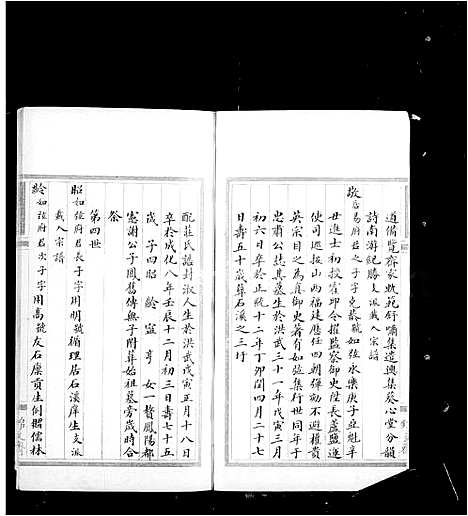 道備覽齋家軌範舒嘯集遺澳集葵心堂分韻
詩南游紀勝支派載入宗譜
敬 居易府君之子字克恭號如弦永樂庚子亞魁辛
丑進士初授霍邱令擢監察御史陞長蘆鹽運
使司巡按山西福建歷任四朝彈劾不避權貴
英宗目之為真御史著有如弦集行世同年于
忠肅公誌其墓生於洪武三十一年戊寅三月
初六日卒於正統十二年丁卯閏四月二十七
日壽五十歲葬石溪之三圩
配莊氏誥封淑人生於洪武戊寅正月十八日
卒於成化八年壬辰十二月初三日壽七十五
歲 子四昭 齡 寔 亨 女一贅鳳陽都
憲謝公子鳳舊傳無子附葬始祖墓旁歲時合
祭
第四世
昭 如弦府君長子字用明號循理居石溪庠生支派
載入宗譜
齡 如弦府君次子字用高號友石廩貢生例贈儒林